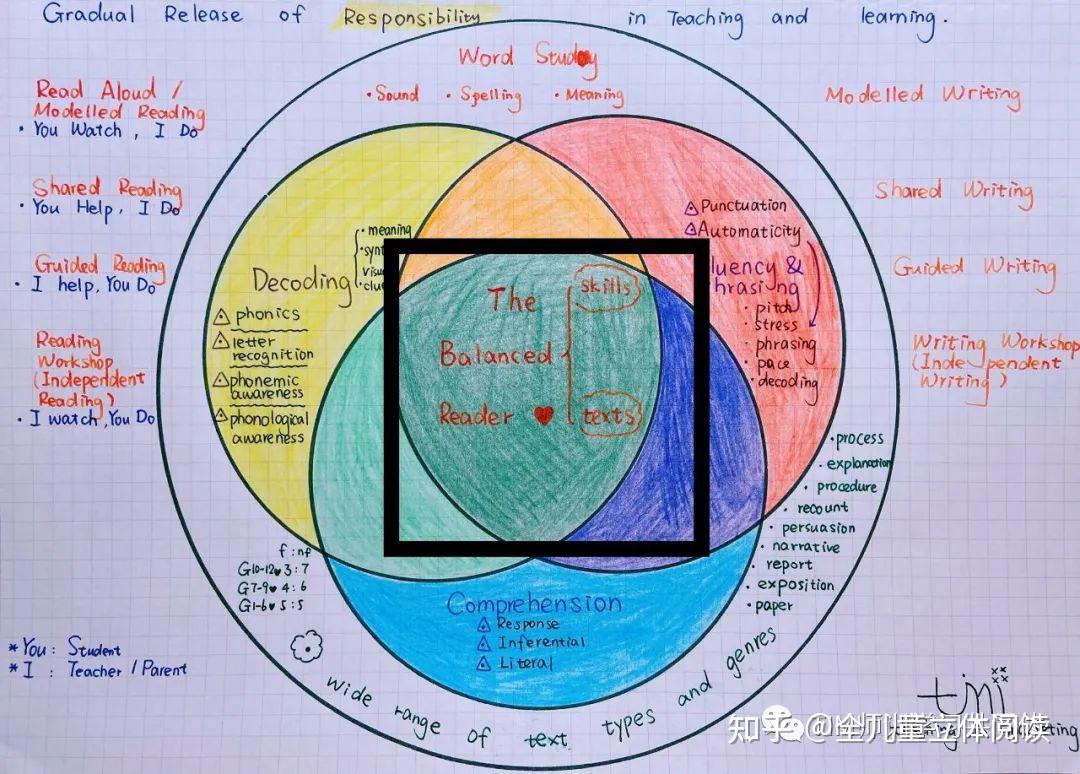 Gradual Release of Responsibility in Teaching and learning.
Word Study
• Sound • Spelling • Meaning
Read Aloud /
Modelled Reading
• You Watch, I Do
Shared Reading
• You Help, I Do
Guided Reading
• I help, You Do
Reading
Workshop
(Independent
Reading)
• I watch, You Do
Modelled Writing
Shared Writing
Guided Writing
Writing Workshop
(Independent
Writing)
Decoding
• meaning
phonics
letter
recognition
phonemic
awareness
phonological
awareness
Punctuation
Automaticity
&
• pitch
• stress
• phrasing
• pace
• decoding
The
Balanced
Reader
skills
texts
Comprehension
Response
Inferential
Literal
f : nf
G10-12 3 : 7
G7-9 4 : 6
G1-6 5 : 5
• process
• explanation
• procedure
• recount
• persuasion
• narrative
• report
• exposition
• paper
wide range of text types and genres
*You : Student
*I : Teacher / Parent
知乎 @全儿童立体阅读